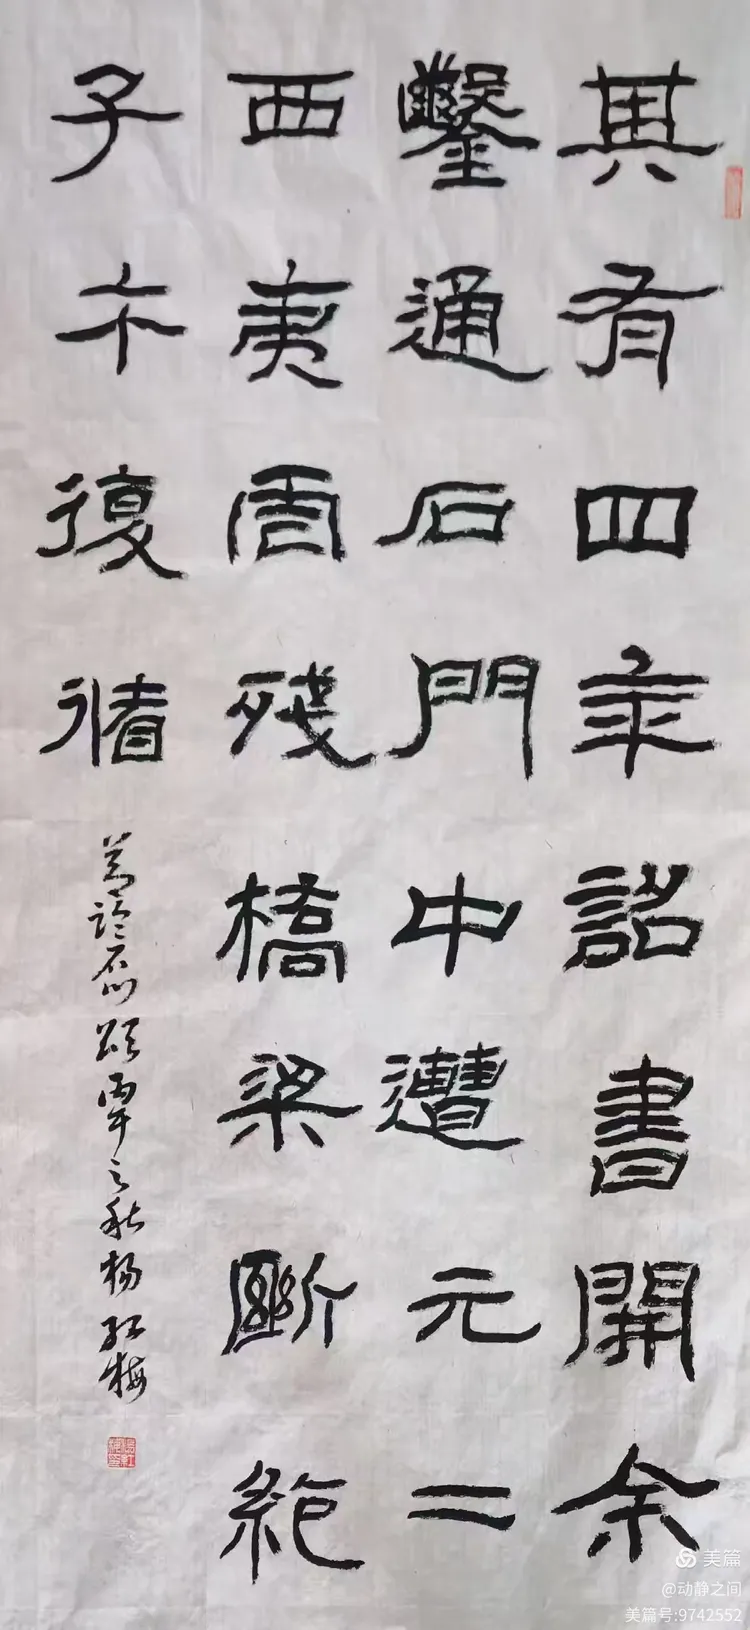 其有四年詔書開余
鑿通石門中遭元二
西夷虐殘橋梁斷絕
子午復循
节临石门颂 之秋 杨红梅
美篇
@动静之间
美篇号:9742552